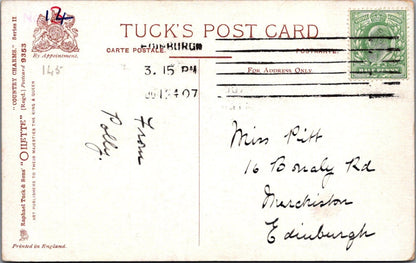 14
TUCK'S POST CARD
CARTE POSTALE
POSTKARTE
By Appointment.
FOR ADDRESS ONLY.
145
EDINBURGH
3.15 PM
07
HALFPENNY
Raphael Tuck & Sons' "OILETTE" "COUNTRY CHARMS." Series II
[Regd.] Postcard 9353
ART PUBLISHERS TO THEIR MAJESTIES THE KING & QUEEN
From
Polly.
Miss Pitt
16 Bonaly Rd
Merchiston
Edinburgh
Printed in England.